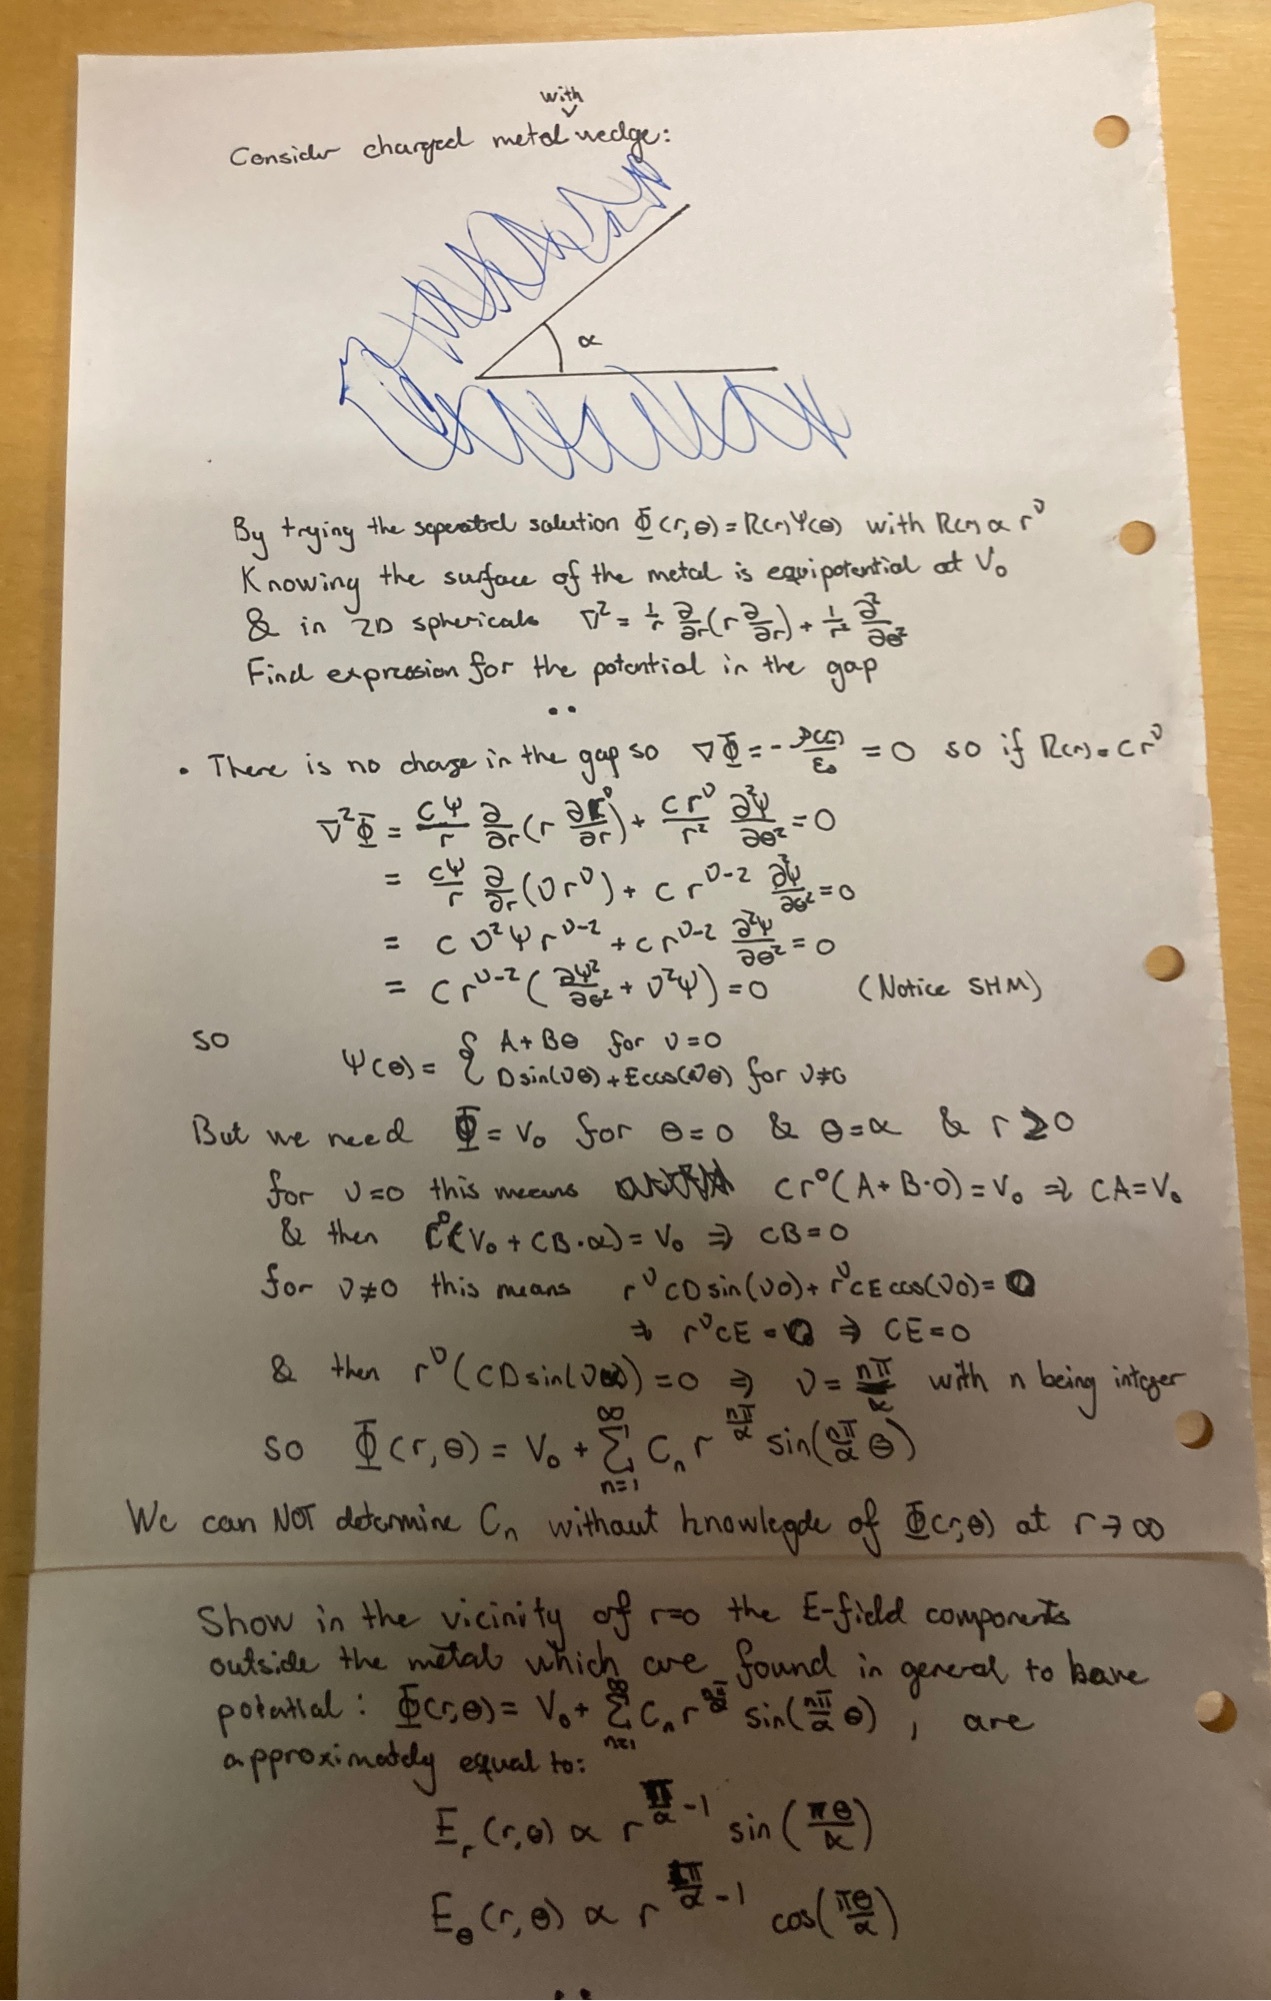 with
Consider charged metal wedge:
α
By trying the seperated solution Φ(r,θ) = R(r)Ψ(θ) with R(r) ∝ r^ν
Knowing the surface of the metal is equipotential at V₀
& in 2D sphericals ∇² = 1/r ∂/∂r(r ∂/∂r) + 1/r² ∂²/∂θ²
Find expression for the potential in the gap
• There is no charge in the gap so ∇Φ = -ρ(r)/ε₀ = 0 so if R(r) = Cr^ν
∇²Φ = CΨ/r ∂/∂r(r ∂r^ν/∂r) + Cr^ν/r² ∂²Ψ/∂θ² = 0
= CΨ/r ∂/∂r(νr^ν) + Cr^(ν-2) ∂²Ψ/∂θ² = 0
= Cν²Ψr^(ν-2) + Cr^(ν-2) ∂²Ψ/∂θ² = 0
= Cr^(ν-2)(∂Ψ²/∂θ² + ν²Ψ) = 0 (Notice SHM)
so
Ψ(θ) = { A + Bθ for ν=0
Dsin(νθ) + Ecos(νθ) for ν≠0
But we need Φ = V₀ for θ=0 & θ=α & r≥0
for ν=0 this means Cr⁰(A + B·0) = V₀ ⇒ CA = V₀
& then r⁰(V₀ + CB·α) = V₀ ⇒ CB = 0
for ν≠0 this means r^ν CD sin(ν0) + r^ν CE cos(ν0) = 0
⇒ r^ν CE = 0 ⇒ CE = 0
& then r^ν(CD sin(να)) = 0 ⇒ ν = nπ/α with n being integer
so Φ(r,θ) = V₀ + Σ_{n=1}^∞ Cₙ r^(nπ/α) sin(nπ/α θ)
We can NOT determine Cₙ without knowlegde of Φ(r,θ) at r→∞
Show in the vicinity of r=0 the E-field components
outside the metal which are found in general to have
potential: Φ(r,θ) = V₀ + Σ_{n=1}^∞ Cₙ r^(nπ/α) sin(nπ/α θ), are
approximately equal to:
E_r(r,θ) ∝ r^(π/α - 1) sin(πθ/α)
E_θ(r,θ) ∝ r^(π/α - 1) cos(πθ/α)